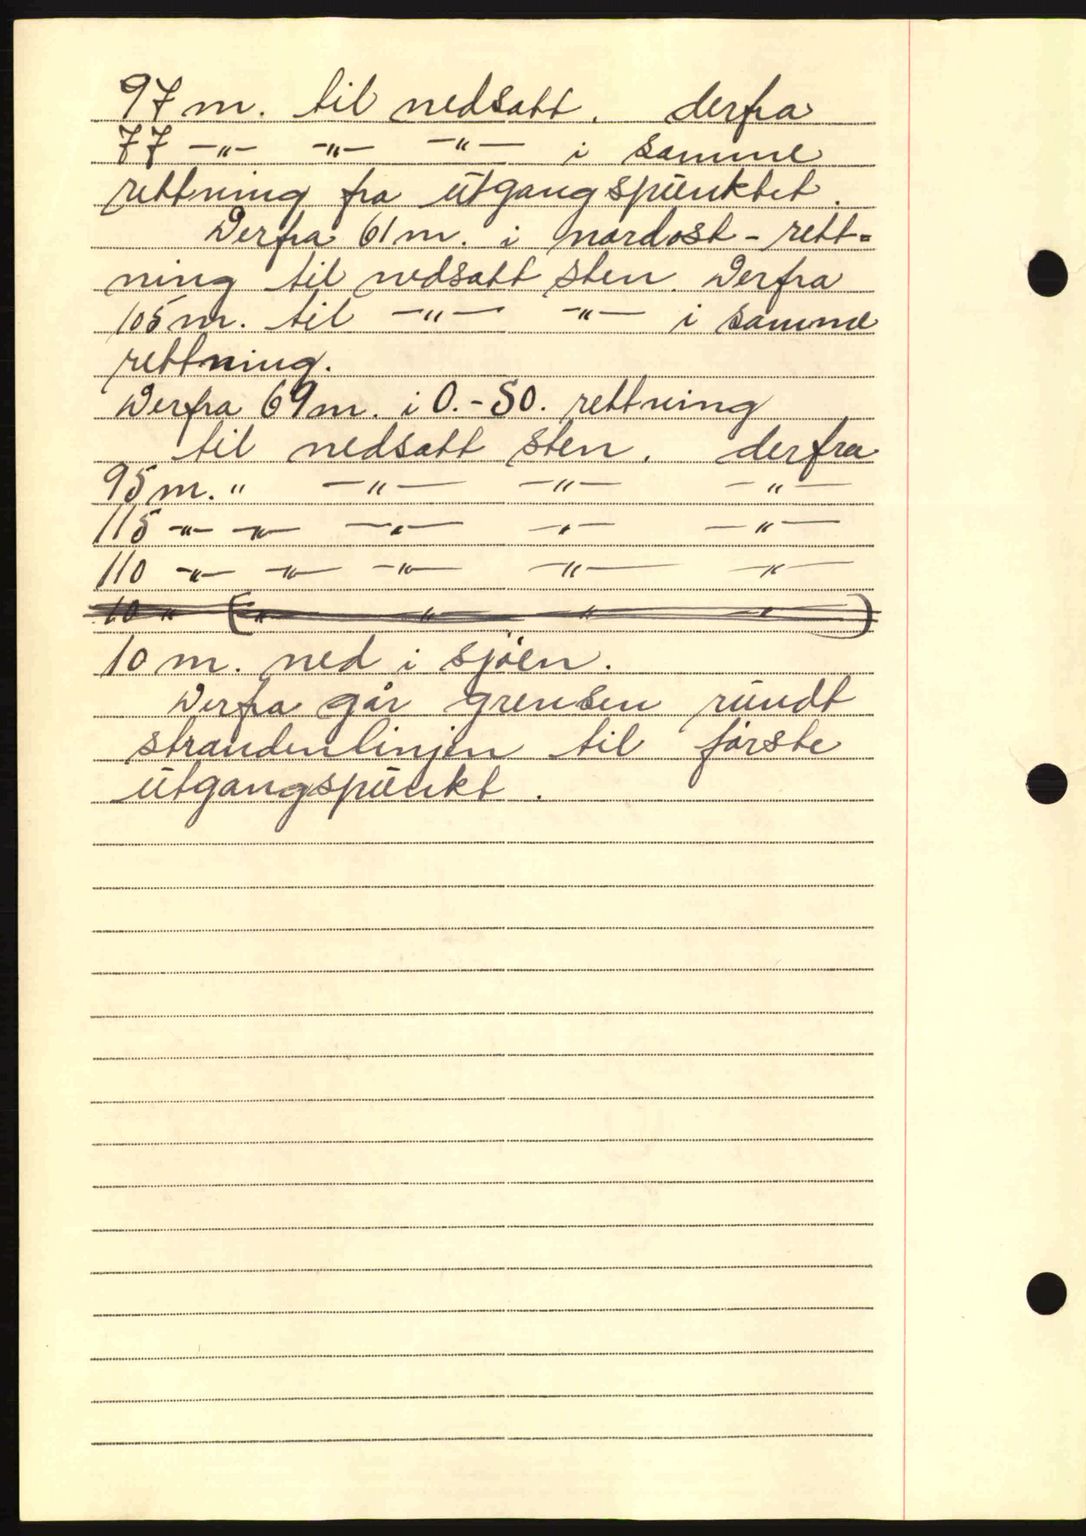 97 m. til nedsatt. derfra
77 —"— —"— —"— i samme
rettning fra utgangspunktet.
Derfra 61 m. i nordost - rett-
ning til nedsatt sten. Derfra
105 m. til —"— —"— i samme
rettning.
Derfra 69 m. i O.-SO. rettning
til nedsatt sten. derfra
95 m. " —"— —"— —"—
115 —"— —"— —"— —"— —"—
110 —"— —"— —"— —"— —"—
10 " (" " " ")
10 m. ned i sjöen.
Derfra går grensen rundt
strandenlinjen til förste
utgangspunkt.